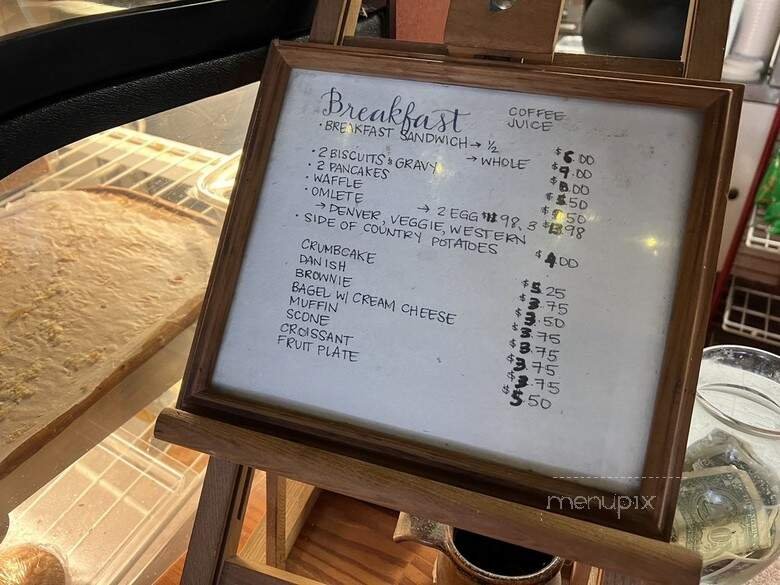 Breakfast
COFFEE
JUICE
• BREAKFAST SANDWICH → ½ $6.00
→ WHOLE $9.00
• 2 BISCUITS & GRAVY $8.00
• 2 PANCAKES 50
• WAFFLE 50
• OMLETE → 2 EGG 98, 3 98
→ DENVER, VEGGIE, WESTERN
• SIDE OF COUNTRY POTATOES $4.00
CRUMBCAKE $5.25
DANISH $3.75
BROWNIE $3.50
BAGEL W/ CREAM CHEESE $3.75
MUFFIN $3.75
SCONE $3.75
CROISSANT $3.75
FRUIT PLATE $5.50
menupix